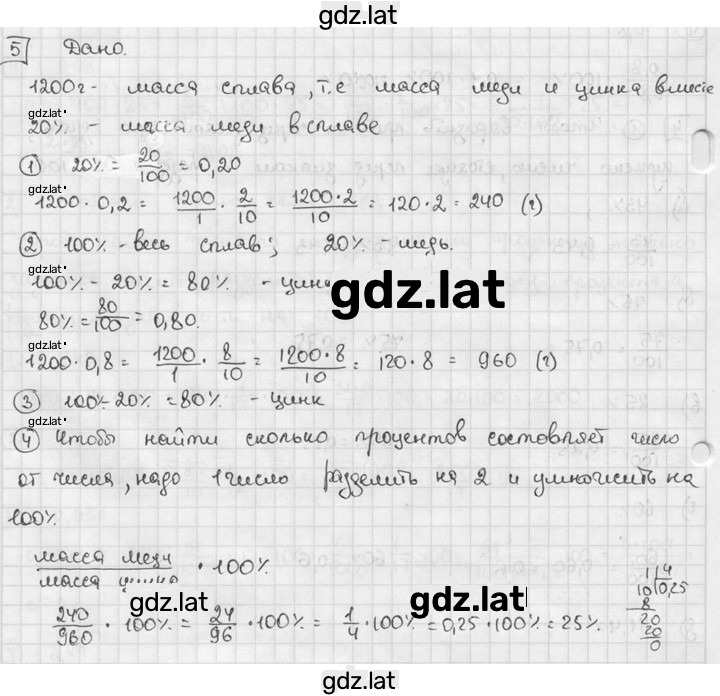 gdz.lat
5 Дано.
1200г - масса сплава, т.е масса меди и цинка вместе
gdz.lat
20% - масса меди в сплаве
① 20% = 20/100 = 0,20
gdz.lat
1200 · 0,2 = 1200/1 · 2/10 = 1200·2/10 = 120·2 = 240 (г)
② 100% - весь сплав; 20% - медь.
gdz.lat
100% - 20% = 80% - цинк
gdz.lat
80% = 80/100 = 0,80.
gdz.lat
1200·0,8 = 1200/1 · 8/10 = 1200·8/10 = 120·8 = 960 (г)
③ 100%-20% = 80% - цинк
gdz.lat
④ Чтобы найти сколько процентов состовляет число
от числа, надо 1 число разделить на 2 и умножить на
100%
масса меди/масса цинка · 100%
gdz.lat
gdz.lat
240/960 · 100% = 24/96 · 100% = 1/4 · 100% = 0,25 · 100% = 25%
1 4
10 0,25
8
20
20
0
gdz.lat